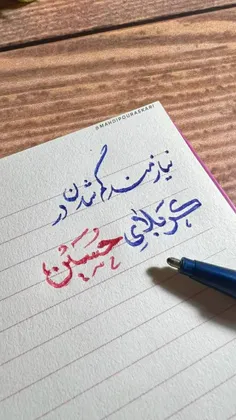 @MAHDIPOURASKARI
نیازمند گم شدن در
کربلایِ حُسَیْن